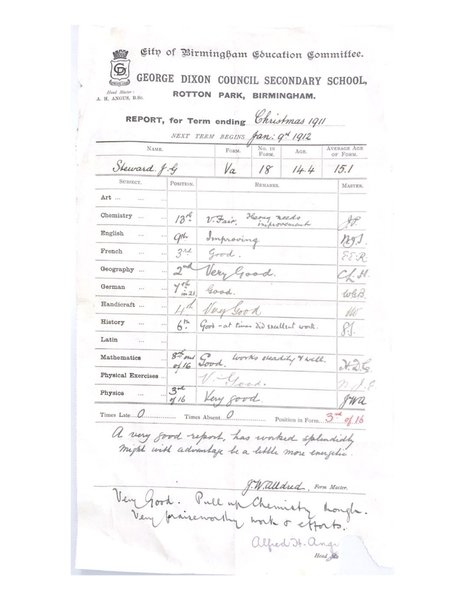 City of Birmingham Education Committee.
GEORGE DIXON COUNCIL SECONDARY SCHOOL,
ROTTON PARK, BIRMINGHAM.
Head Master:
A. H. ANGUS, B.Sc.
REPORT, for Term ending Christmas 1911
NEXT TERM BEGINS Jan: 9th 1912
NAME. FORM. NO. IN FORM. AGE. AVERAGE AGE OF FORM.
Steward J.G Va 18 14.4 15.1
SUBJECT. POSITION. REMARKS. MASTER.
Art
Chemistry 13th V. Fair. needs improvement
English 9th Improving
French 3rd Good. E.E.R.
Geography 2nd Very Good.
German Good.
Handicraft 4th Very Good
History 6th Good - at times did excellent work.
Latin
Mathematics of 16 Good. Works steadily & well.
Physical Exercises V. Good.
Physics 3rd of 16 Very good JWA
Times Late 0 Times Absent 0 Position in Form 3rd of 16
A very good report, has worked splendidly
Might with advantage be a little more energetic.
J.W.Alldred. Form Master.
Very Good. Pull up Chemistry
Very praiseworthy work & efforts.
Alfred H. Angu
Head